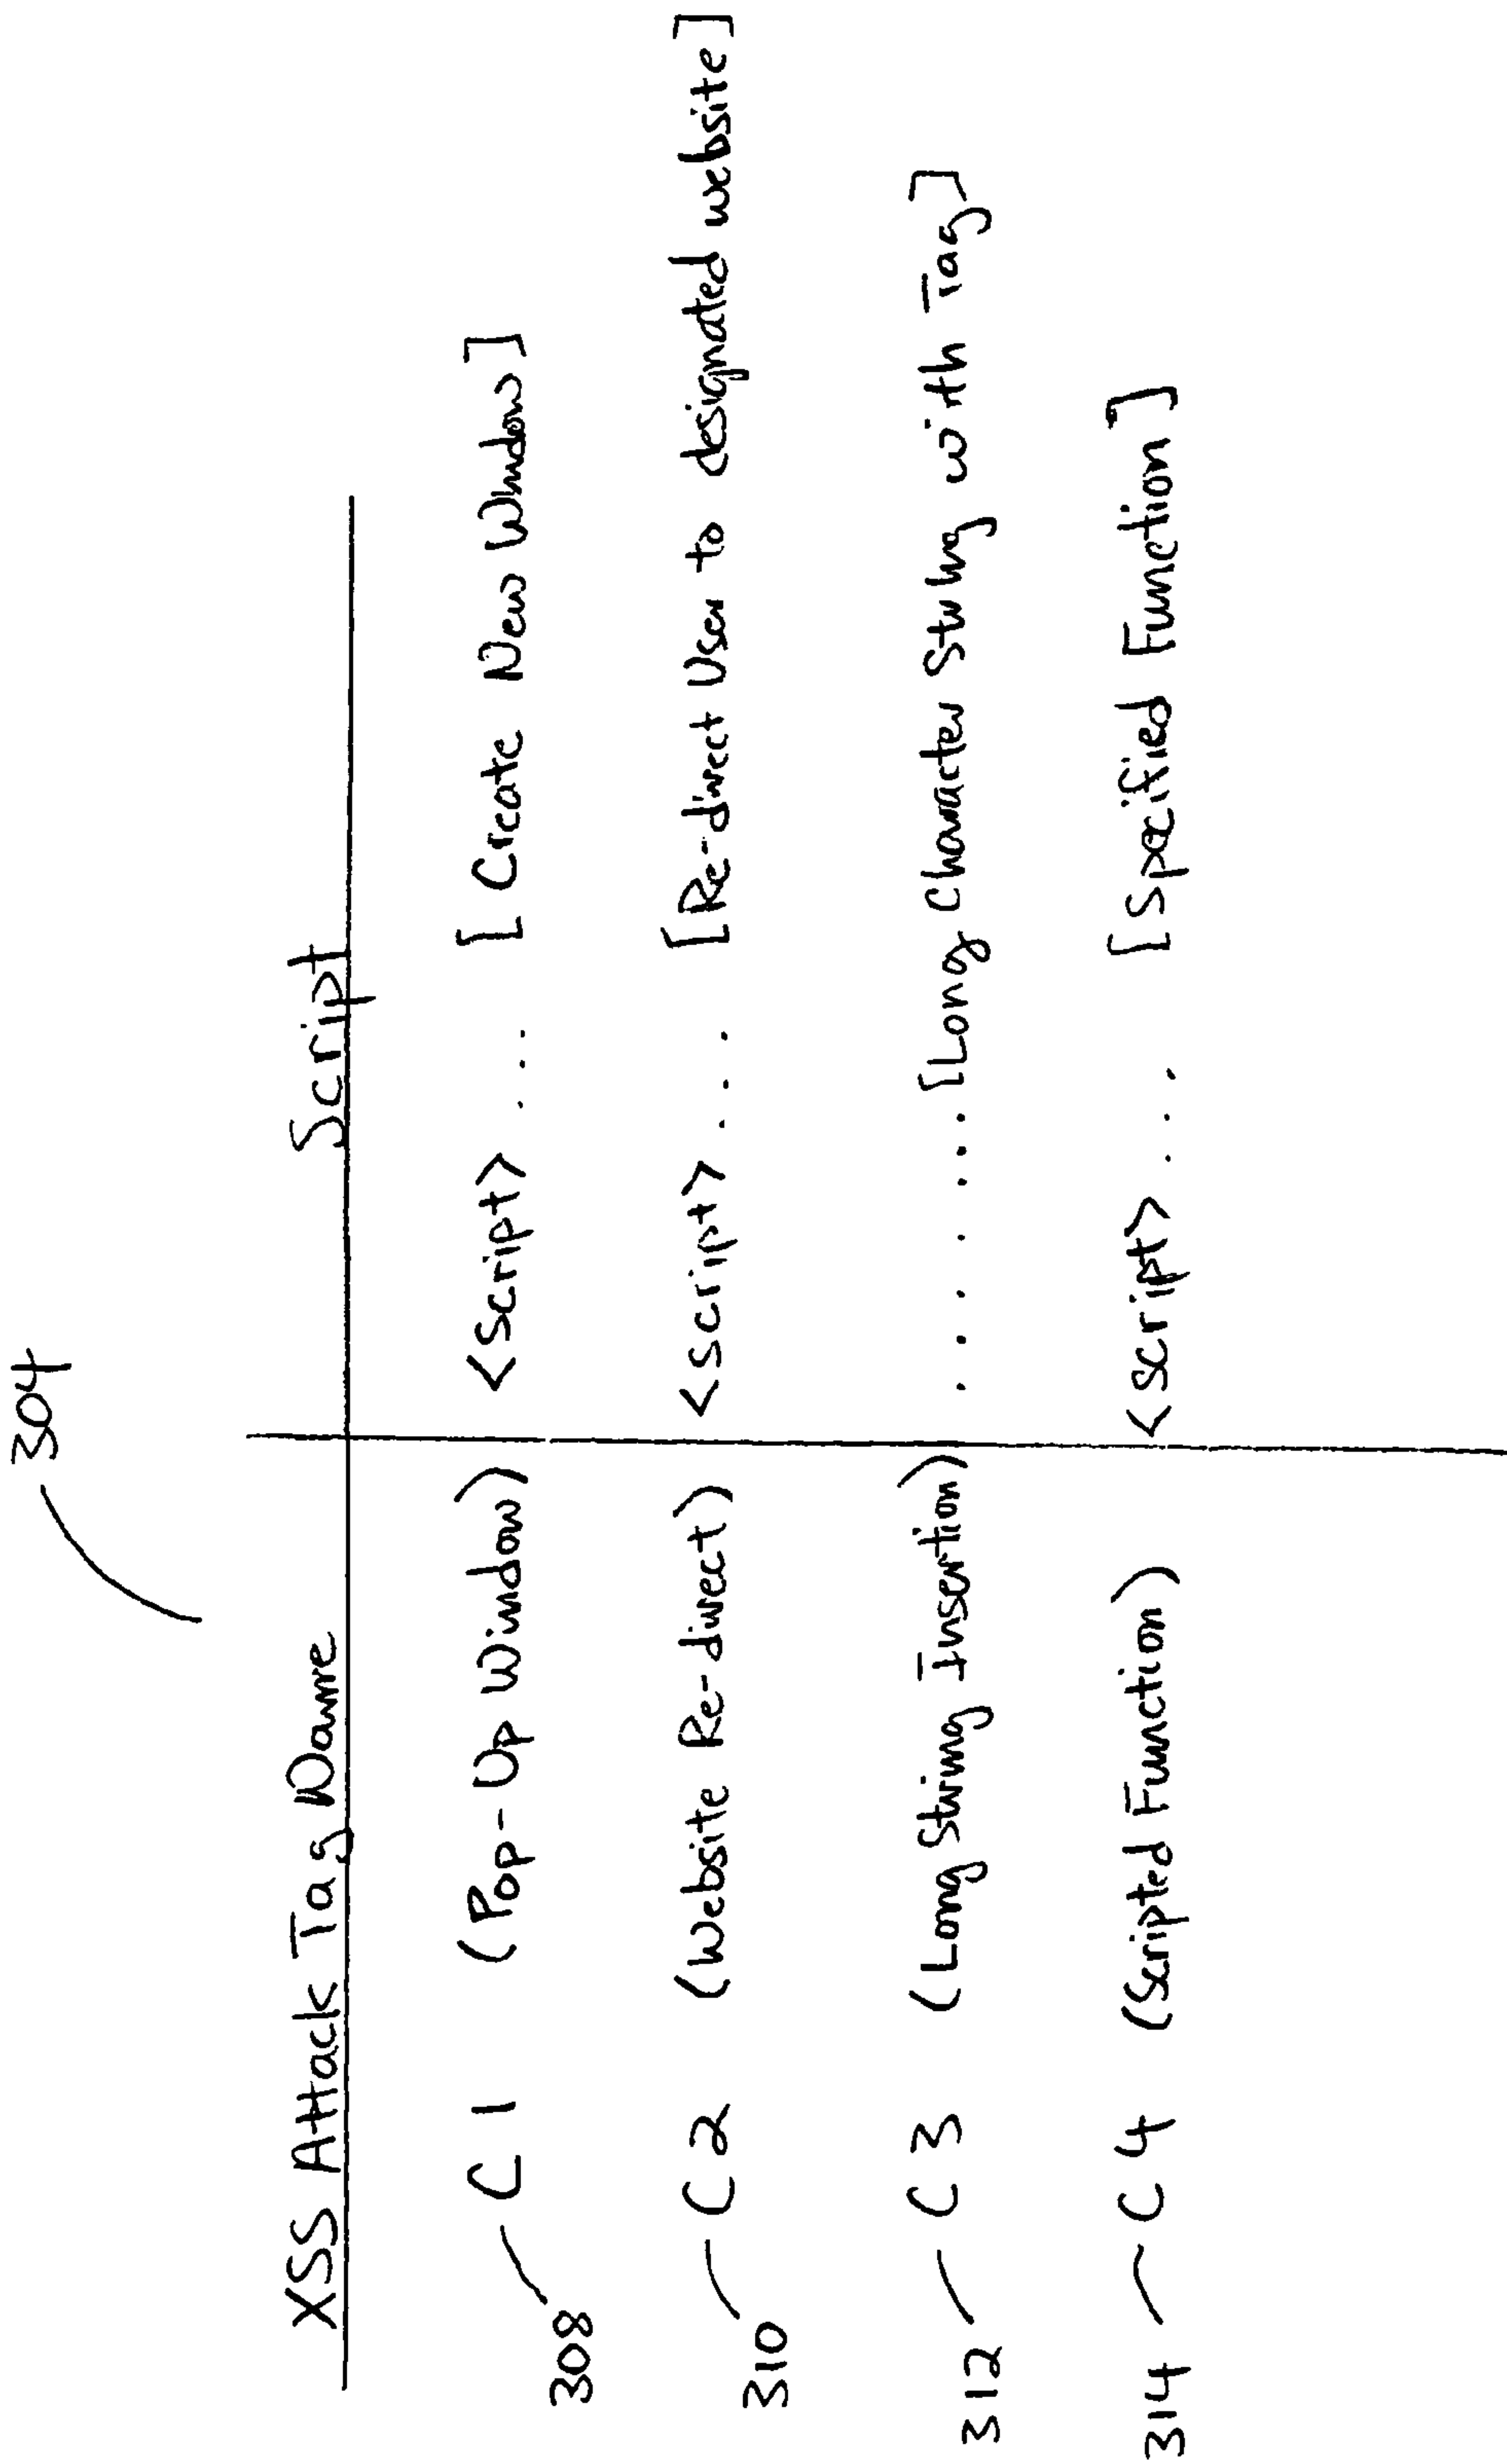 304
XSS Attack Tag Name Script
308 C1 (Pop-Up Window) <script> ... [Create New Window]
310 C2 (Website Re-direct) <script> ... [Re-direct User to designated website]
312 C3 (Long String Insertion) .......[Long Character String with Tag]
314 C4 (Scripted Function) <script> ... [Specified Function]